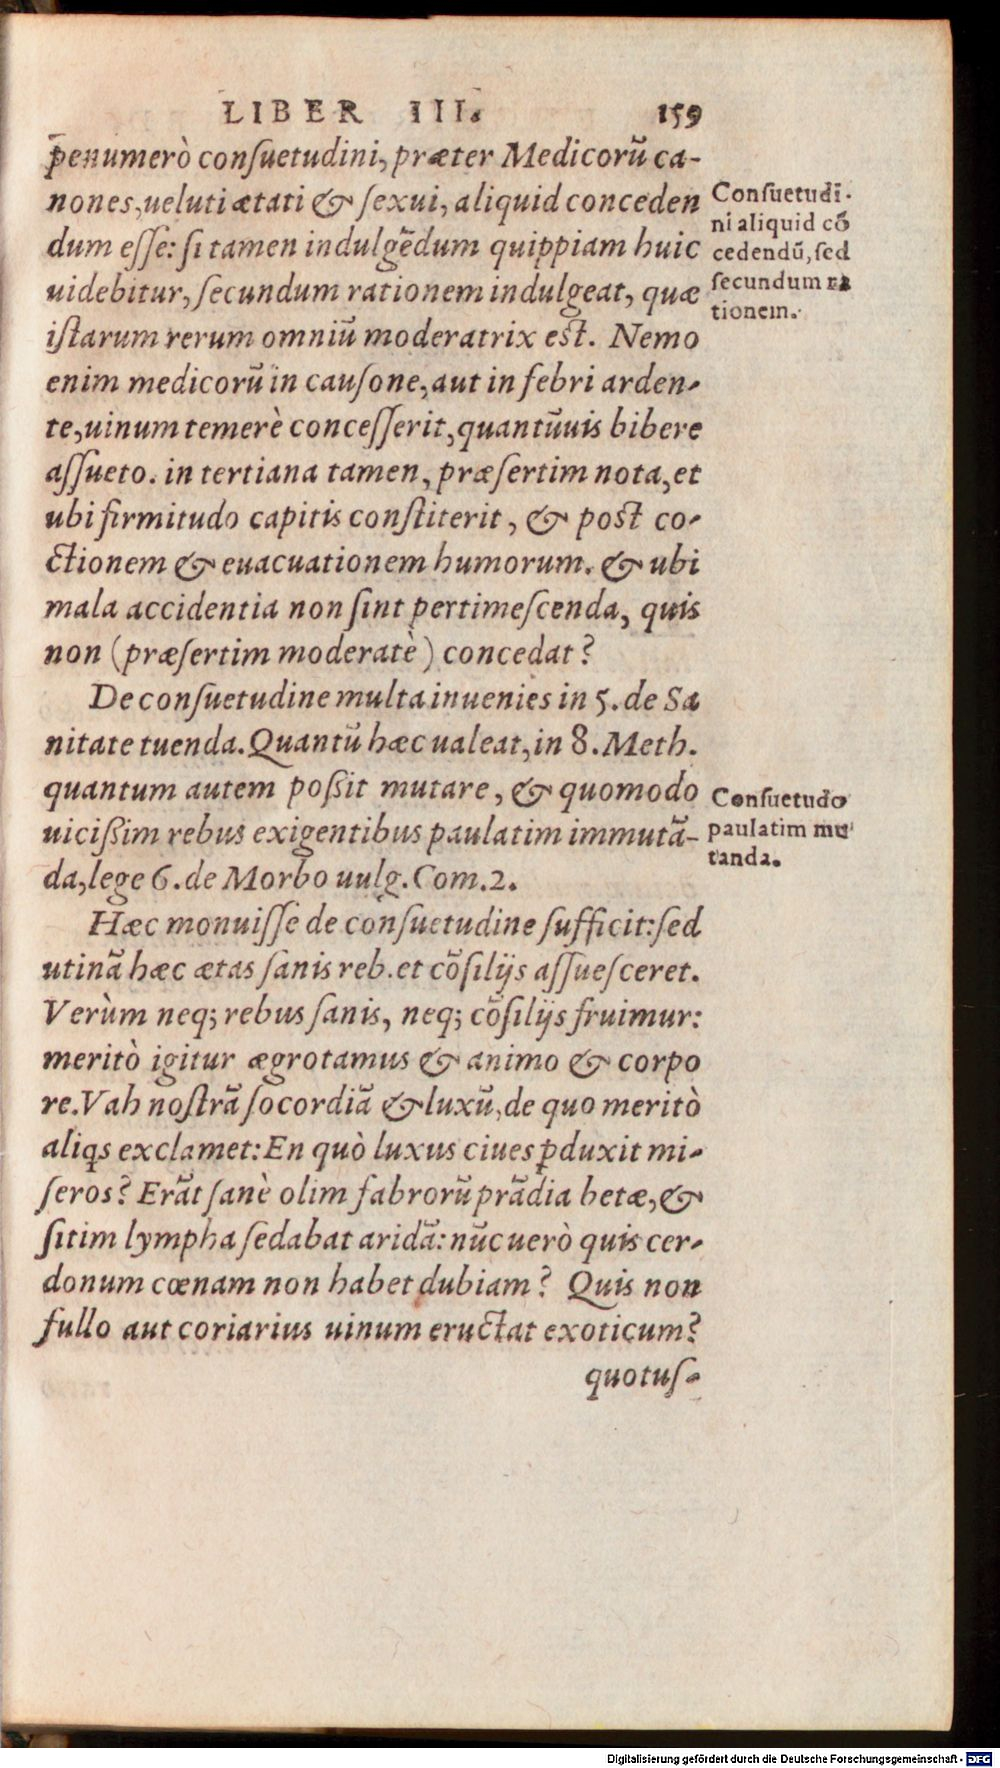 LIBER III. 159
penumerò conſuetudini, præter Medicorũ ca-
nones, ueluti ætati & ſexui, aliquid conceden
dum eſſe: ſi tamen indulgẽdum quippiam huic
uidebitur, ſecundum rationem indulgeat, quæ
iſtarum rerum omniũ moderatrix est. Nemo
enim medicorũ in cauſone, aut in febri arden-
te, uinum temerè conceſſerit, quantũuis bibere
aſſueto. in tertiana tamen, præſertim nota, et
ubi firmitudo capitis conſtiterit, & post co-
ctionem & euacuationem humorum. & ubi
mala accidentia non ſint pertimeſcenda, quis
non (præſertim moderatè) concedat?
De conſuetudine multa inuenies in 5. de Sa
nitate tuenda. Quantũ hæc ualeat, in 8. Meth.
quantum autem poßit mutare, & quomodo
uicißim rebus exigentibus paulatim immutã-
da, lege 6. de Morbo uulg. Com. 2.
Hæc monuiſſe de conſuetudine ſufficit: ſed
utinã hæc ætas ſanis reb. et cõſilijs aſſueſceret.
Verùm neq; rebus ſanis, neq; cõſilijs fruimur:
meritò igitur ægrotamus & animo & corpo
re. Vah noſtrã ſocordiã & luxũ, de quo meritò
aliqs exclamet: En quò luxus ciues ꝑduxit mi-
ſeros? Erãt ſanè olim fabrorũ prãdia betæ, &
ſitim lympha ſedabat aridã: nũc uerò quis cer-
donum cœnam non habet dubiam? Quis non
fullo aut coriarius uinum eructat exoticum?
quotuſ-
Conſuetudi-
ni aliquid cõ
cedendũ, ſed
ſecundum ra
tionem.
Conſuetudo
paulatim mu
tanda.
Digitalisierung gefördert durch die Deutsche Forschungsgemeinschaft - DFG